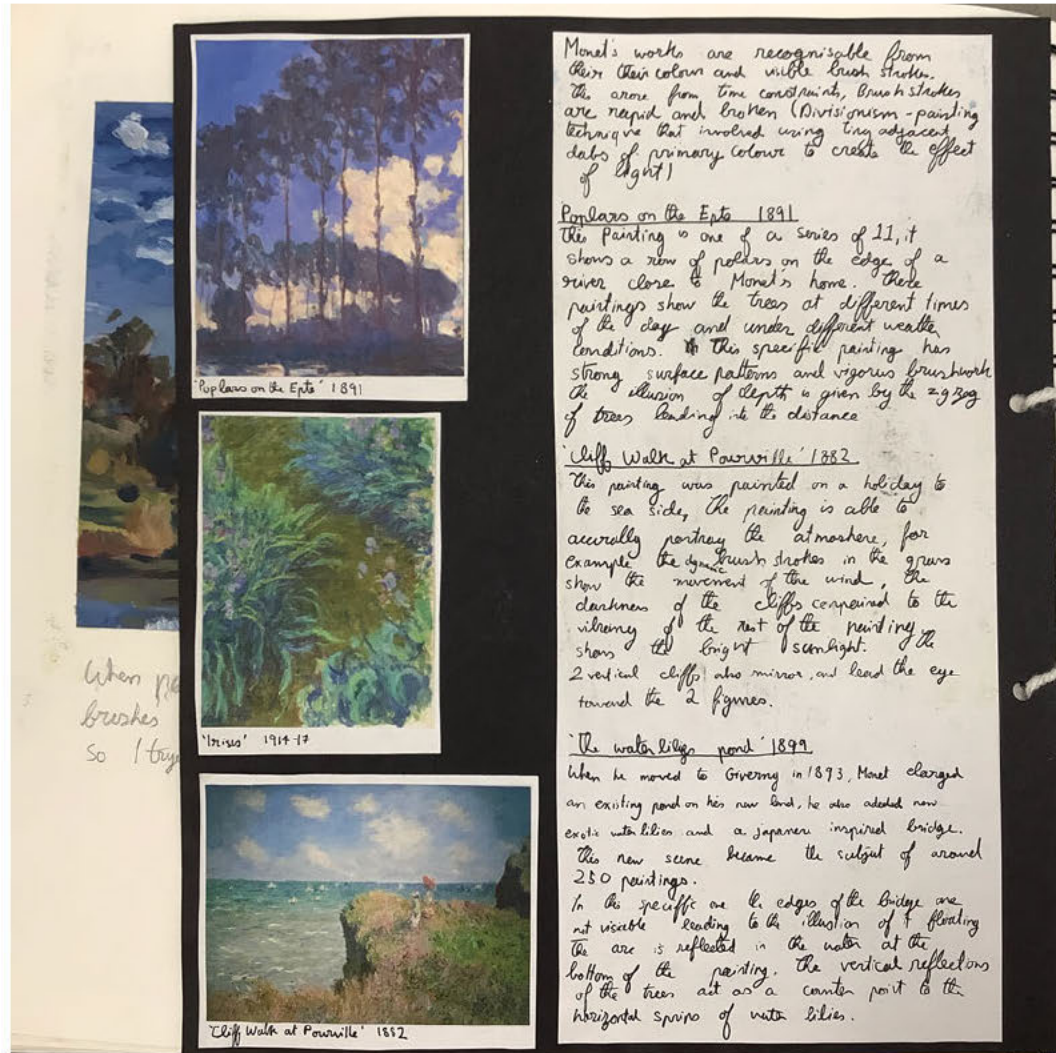 When
brushes
so I
'Poplars on the Epte' 1891
'Irises' 1914-17
'Cliff Walk at Pourville' 1882
Monet's works are recognisable from
their their colour and visible brush strokes.
This arose from time constraints, Brush strokes
are rapid and broken (Divisionism - painting
technique that involved using tiny adjacent
dabs of primary colour to create the effect
of light)
Poplars on the Epte 1891
This Painting is one of a series of 11, it
shows a row of polars on the edge of a
river close to Monet's home. These
paintings show the trees at different times
of the day and under different weather
conditions. This specific painting has
strong surface patterns and vigorous brushwork
The illusion of depth is given by the zigzag
of trees leading into the distance
'Cliff Walk at Pourville' 1882
This painting was painted on a holiday to
the sea side, The painting is able to
accurally portray the atmoshere, for
example the dynamic brush strokes in the grass
show the movement of the wind, the
darkness of the cliffs compaired to the
vibrancy of the rest of the painting
shows the bright sunlight. The
2 vertical cliffs also mirror, and lead the eye
toward the 2 figures.
'The water lilies pond' 1899
When he moved to Giverny in 1893, Monet elarged
an existing pond on his new land, he also adeded new
exotic water lilies and a japanese inspired bridge.
This new scene became the subject of around
250 paintings.
In this speciffic one the edges of the bridge are
not visible leading to the illusion of it floating
The arc is reflected in the water at the
bottom of the painting. The vertical reflections
of the trees act as a counter point to the
horizontal of water lilies.